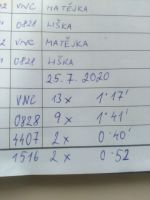 VNC MATĚJKA
0828 LIŠKA
VNC MATĚJKA
0828 LIŠKA
25.7.2020
VNC 13x 1°17'
0828 9x 1°41'
4407 2x 0°40'
1516 2x 0°52